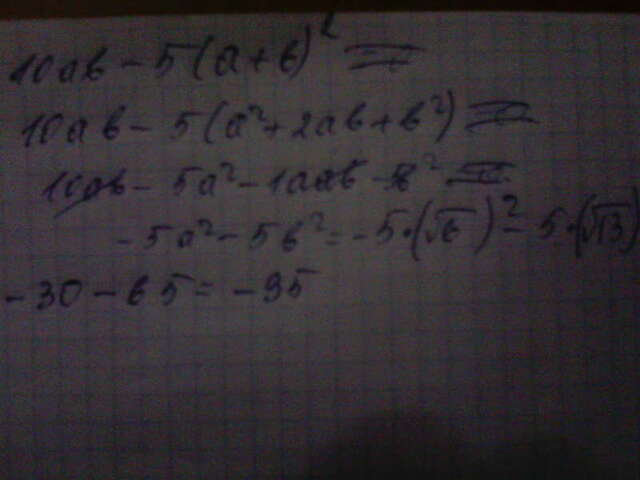 10ab - 5(a+b)² =
10ab - 5(a² + 2ab + b²) =
10ab - 5a² - 10ab - 5b² =
-5a² - 5b² = -5·(√6)² - 5·(√13)
-30 - 65 = -95